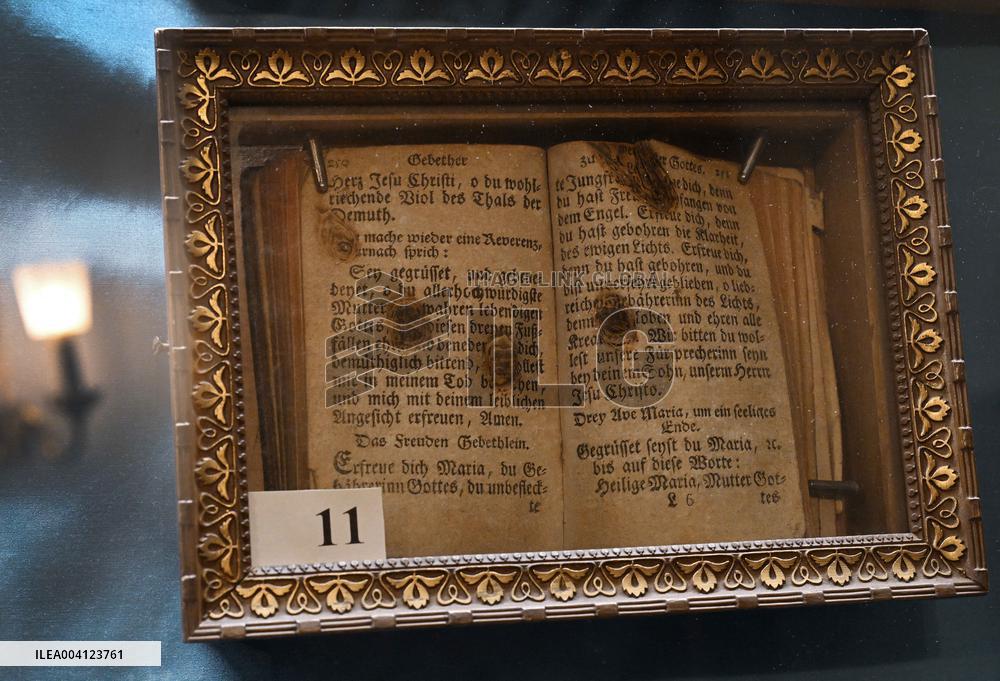 250 Gebether
Herz Jesu Christi, o du wohl-
riechende Viol des Thals der
Demuth.
mache wieder eine Reverenz,
darnach sprich:
Sey gegrüsset, und
o du allerhochwürdigste
Mutter wahren lebendigen
Gottes diesen dreyen Fuß-
fällen dich,
demüthiglich bittend,
in meinem Tod
und mich mit deinem leiblichen
Angesicht erfreuen, Amen.
Das Freuden Gebethlein.
Erfreue dich Maria, du Ge-
bährerinn Gottes, du unbefleck-
te
zu der Gottes. 251
te Jungfr dich, denn
du hast Freu empfangen von
dem Engel. Erfreue dich, denn
du hast gebohren die Klarheit,
des ewigen Lichts. Erfreue dich,
denn du hast gebohren, und du
bist geblieben, o lieb-
reiche Gebährerinn des Lichts,
denn loben und ehren alle
Krea Wir bitten du wol-
lest unsere Fürsprecherinn seyn
bey deinem Sohn, unserm Herrn
Jesu Christo.
Drey Ave Maria, um ein seeliges
Ende.
Gegrüsset seyst du Maria, ꝛc.
bis auf diese Worte:
Heilige Maria, Mutter Got-
L 6 tes
11
IMAGE LINK GLOBAL
ILG
ILEA004123761